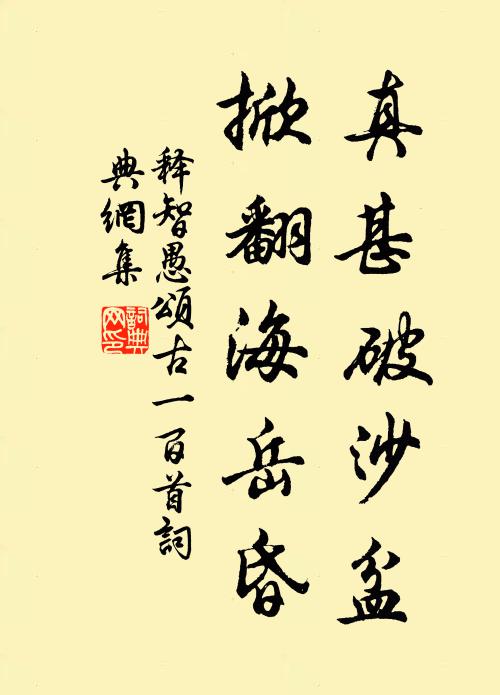 真甚破沙盆
掀翻海岳昏
释智愚頌古一百首詞
典網集
詞典
网印